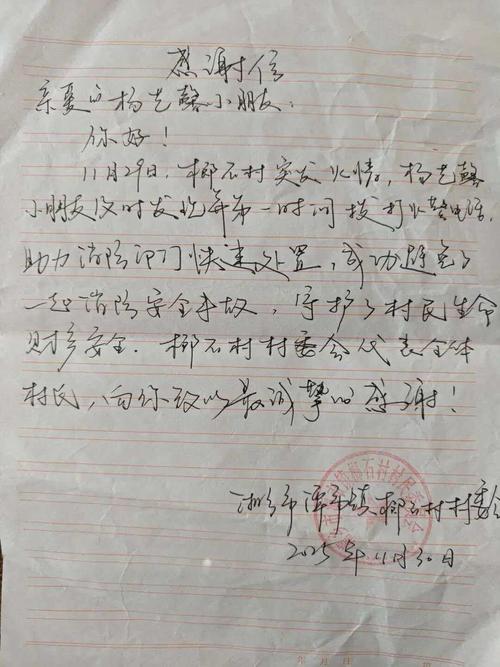 感谢信
亲爱的杨艺馨小朋友：
你好！
11月29日，椰石村突发火情。杨艺馨
小朋友及时发现并第一时间拨打火警电话，
助力消防部门快速处置，成功避免了
一起消防安全事故，守护了村民生命
财产安全．椰石村村委会代表全体
村民，向你致以最诚挚的感谢！
湘乡市潭市镇椰石村村委会
2025年11月30日
年 月 日